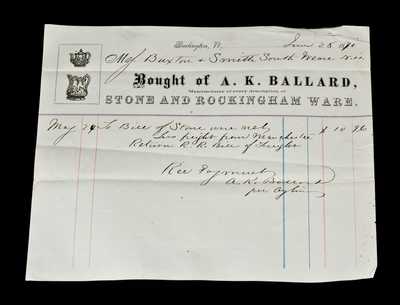 Burlington, Vt. June 28 1870
Buxton & Smith South Weare
Bought of A. K. BALLARD,
Manufacturer of every description of
STONE AND ROCKINGHAM WARE.
May 24 To Bill of Stone ware net $ 10 96
Less freight from Manchester
Return R. R. Bill of freight
Rec Payment
A. K. Ballard
per